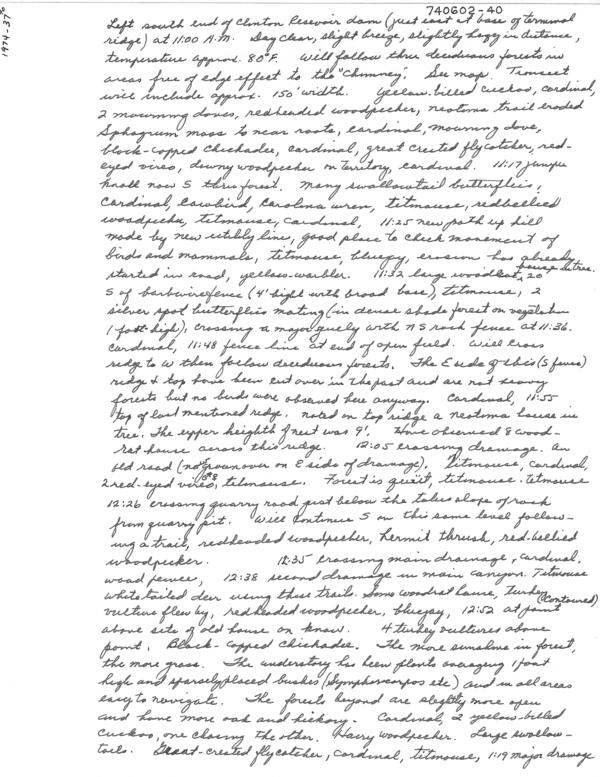 740602-40
1974-37
Left south end of Clinton Resevoir dam (just east at base of terminal
ridge) at 11:00 A.M. Day clear, slight breeze, slightly hazy in distance,
temperature approx. 80°F. Will follow thru deciduous forests in
areas free of edge effect to the "Chimney". See map. Transect
will include approx. 150' width. Yellow-billed cuckoo, cardinal,
2 mourning doves, redheaded woodpecker, neotoma trail eroded
Sphagnum moss to near roots, cardinal, mourning dove,
black-capped chickadee, cardinal, great crested flycatcher, red-
eyed vireo, downy woodpecker on territory, cardinal. 11:17 juniper
knoll now S thru forest. Many swallowtail butterflies,
cardinal, cowbird, Carolina wren, titmouse, redbellied
woodpecker, titmouse, cardinal, 11:25 new path up hill
made by new utility line, good place to check movement of
birds and mammals, titmouse, bluejay, erosion has already
started in road, yellow-warbler. 11:32 large woodrat house, 20'
S of barbwire fence (4' hight with broad base), titmouse, 2
silver spot butterflies mating (in dense shade forest on vegetation
1 foot high), crossing a major gully with N S rock fence at 11:36.
Cardinal, 11:48 fence line at end of open field. Will cross
ridge to W then follow deciduous forests. The E side of this (S fence)
ridge & top have been cut over in the past and are not heavy
forests but no birds were observed here anyway. Cardinal, 11:55
top of last mentioned ridge. Noted on top ridge a neotoma house in
tree. The upper heighth of nest was 9'. Have observed 8 wood-
rat house across this ridge. 12:05 crossing drainage. An
old road (now grown over on E side of drainage). Titmouse, cardinal,
2 red-eyed vireos, titmouse. Forest is quiet, titmouse. Titmouse
12:26 crossing quarry road just below the talus slope of rock
from quarry pit. Will continue S on this same level follow-
ing a trail, redheaded woodpecker, hermit thrush, red-bellied
woodpecker. 12:35 crossing main drainage, cardinal,
wood pewee, 12:38 second drainage in main canyon. Titmouse
whitetailed deer using these trails. Some woodrat house, Turkey
vulture flew by, redheaded woodpecker, bluejay, 12:52 at point (contoured)
above site of old house on knoll. 4 turkey vultures above
point. Black-capped chickadee. The more sunshine in forest,
the more grass. The understory has been plants averaging 1 foot
high and sparsely placed bushes (Symphoricarpos etc) and in all areas
easy to navigate. The forests beyond are slightly more open
and have more oak and hickory. Cardinal, 2 yellow-billed
cuckoo, one chasing the other. Hairy woodpecker. Large swallow-
tails. Great-crested flycatcher, cardinal, titmouse, 1:19 major drainage